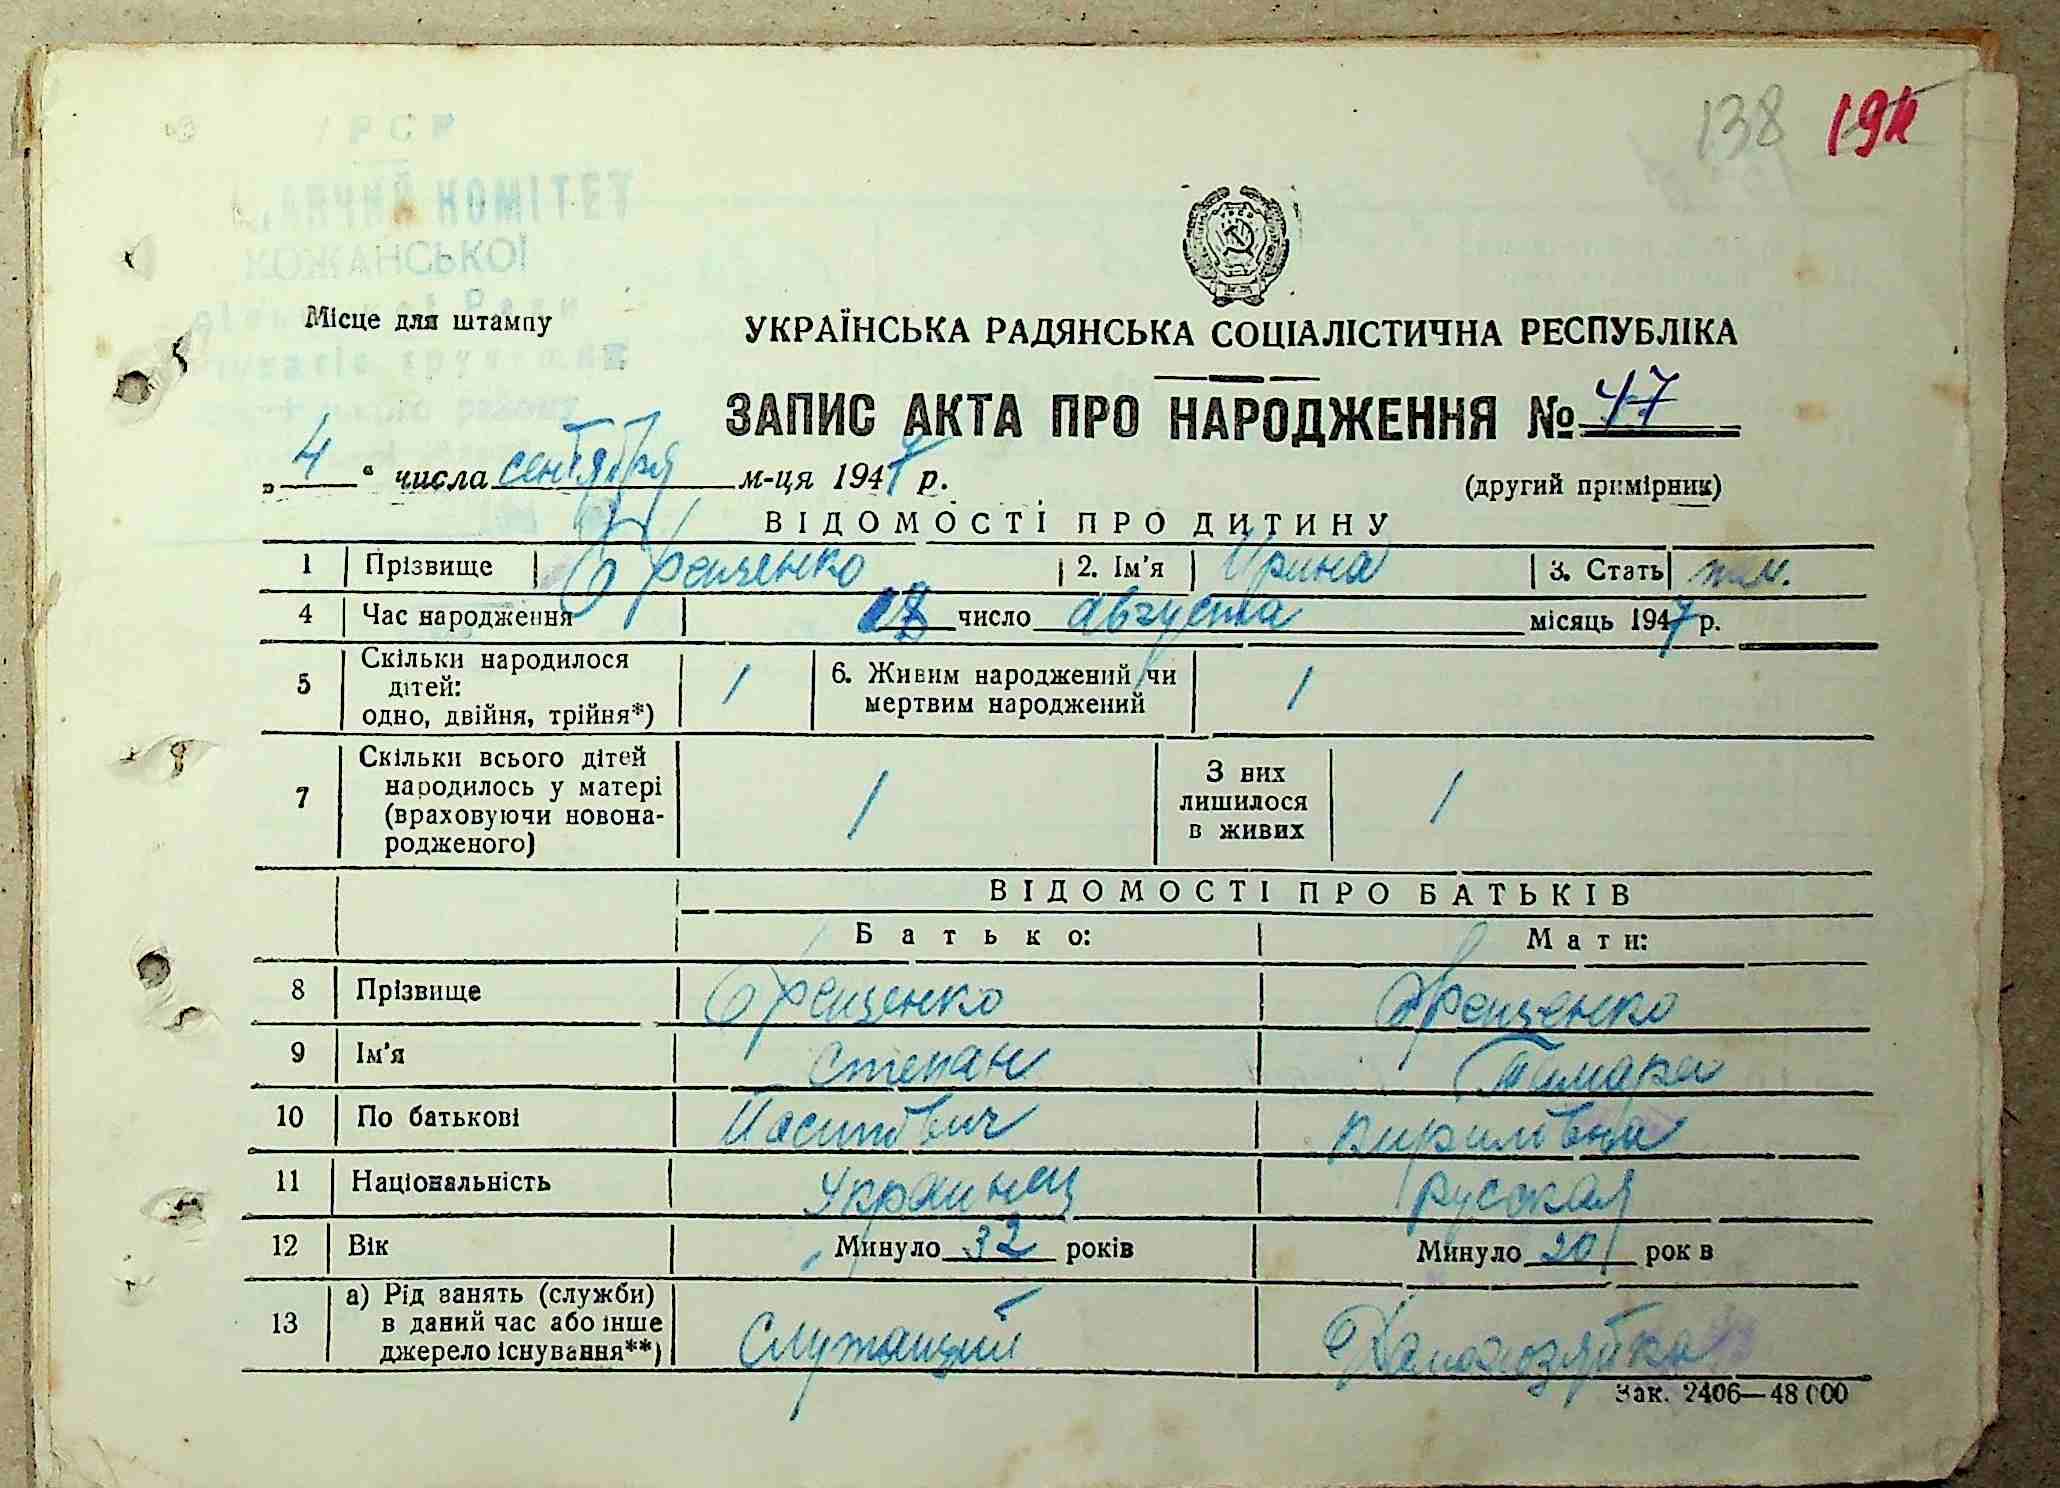 138 19
РСР
КОМІТЕТ
КОЖАНСЬКОЇ
Ради
району
Місце для штампу
УКРАЇНСЬКА РАДЯНСЬКА СОЦІАЛІСТИЧНА РЕСПУБЛІКА
ЗАПИС АКТА ПРО НАРОДЖЕННЯ № 47
„ 4 “ числа сентября м-ця 1947 р.
(другий примірник)
ВІДОМОСТІ ПРО ДИТИНУ
1 Прізвище 2. Ім'я Ирина 3. Стать
4 Час народження 18 число августа місяць 1947 р.
5 Скільки народилося дітей: одно, двійня, трійня*) 1 6. Живим народжений чи мертвим народжений 1
7 Скільки всього дітей народилось у матері (враховуючи новонародженого) 1 З них лишилося в живих 1
ВІДОМОСТІ ПРО БАТЬКІВ
Батько: Мати:
8 Прізвище
9 Ім'я Степан Тамара
10 По батькові Кириловна
11 Національність Украинец русская
12 Вік Минуло 32 років Минуло 20 рок в
13 а) Рід занять (служби) в даний час або інше джерело існування**) Служащий Домохозяйка
Зак. 2406—48 000